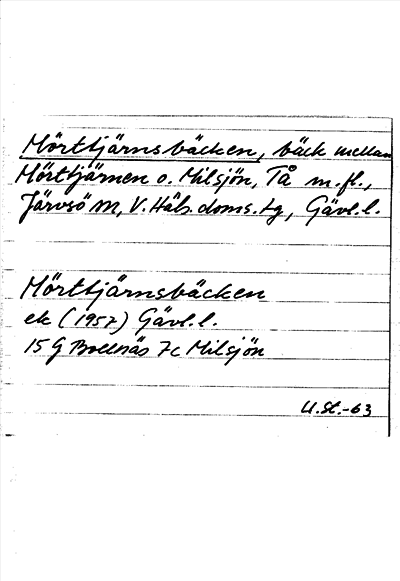 Mörttjärnsbäcken, bäck mellan
Mörttjärnen o. Milsjön, Tå m.fl.,
Järvsö sn, V. Häls. doms. tg, Gävl.l.
Mörttjärnsbäcken
ek (1957) Gävl.l.
15 G Bollnäs 7c Milsjön
U.St.-63